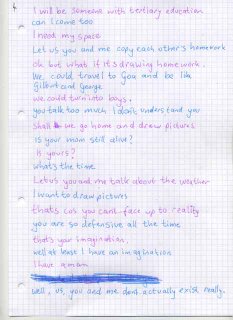 I will be someone with tertiary education
can I come too
I need my space
Let us you and me copy each other's homework
Ok but what if it's drawing homework.
We could travel to Goa and be like
Gilbert and George
we could turn into boys.
you talk too much I don't understand you
shall we go home and draw pictures
is your mom still alive?
Is yours?
what's the time
Let us you and me talk about the weather
I want to draw pictures
thats cos you cant face up to reality
you are so defensive all the time
that's your imagination.
well at least I have an imagination
I have a mom
well, us, you and me dont actually exist really.